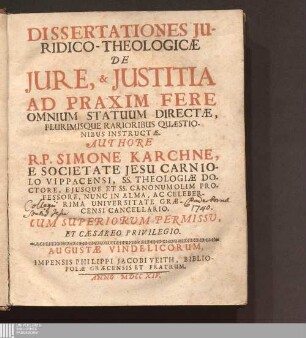 DISSERTATIONES JU-
RIDICO-THEOLOGICÆ
DE
JURE, & JUSTITIA
AD PRAXIM FERE
OMNIUM STATUUM DIRECTÆ,
PLURIMISQUE RARIORIBUS QUÆSTIO-
NIBUS INSTRUCTÆ
AUTHORE
R.P. SIMONE KARCHNE,
E SOCIETATE JESU CARNIO-
LO VIPPACENSI, SS. THEOLOGIÆ DO-
CTORE, EJUSQUE ET SS. CANONUM OLIM PRO-
FESSORE, NUNC IN ALMA, AC CELEBER-
RIMA UNIVERSITATE GRÆ-
CENSI CANCELLARIO.
Collegij
1740.
CUM SUPERIORUM PERMISSU,
ET CÆSAREO PRIVILEGIO.
AUGUSTÆ VINDELICORUM,
IMPENSIS PHILIPPI JACOBI VEITH, BIBLIO-
POLÆ GRÆCENSIS ET FRATRUM.
ANNO MDCCXIV.